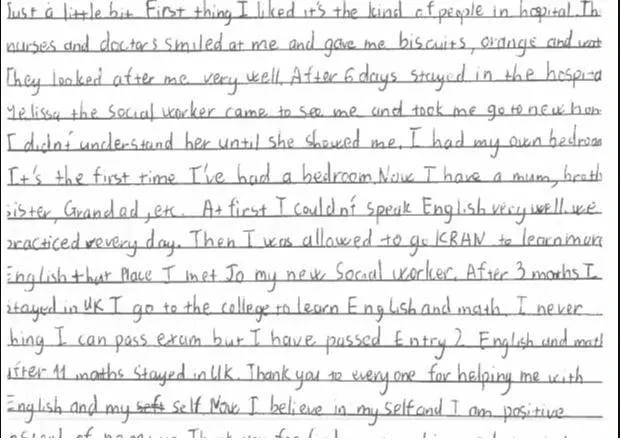 Just a little bit First thing I liked it's the kind of people in hospital. Th
nurses and doctors smiled at me and gave me biscuits, orange and wat
They looked after me very well. After 6 days stayed in the hospita
Melissa the social worker came to see me and took me go to new hom
I didn't understand her until she showed me. I had my own bedroom
It's the first time I've had a bedroom. Now I have a mum, broth
sister, Grandad, etc. At first I couldn't speak English very well. we
practiced every day. Then I was allowed to go KRAN to learn more
English that Place I met Jo my new Social worker. After 3 months I
stayed in UK I go to the college to learn English and math. I never
thing I can pass exam but I have passed Entry 2 English and math
after 11 months stayed in UK. Thank you to everyone for helping me with
English and my self Now I believe in my self and I am positive